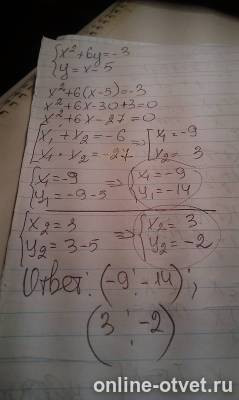 {x²+6y=-3
{y=x-5
x²+6(x-5)=-3
x²+6x-30+3=0
x²+6x-27=0
{x₁+x₂=-6 ⇒ [x₁=-9
{x₁·x₂=-27 [x₂= 3
{x₁=-9 ⇒ {x₁=-9
{y₁=-9-5 {y₁=-14
{x₂=3 ⇒ {x₂=3
{y₂=3-5 {y₂=-2
Ответ: (-9; -14);
(3; -2)
online-otvet.ru